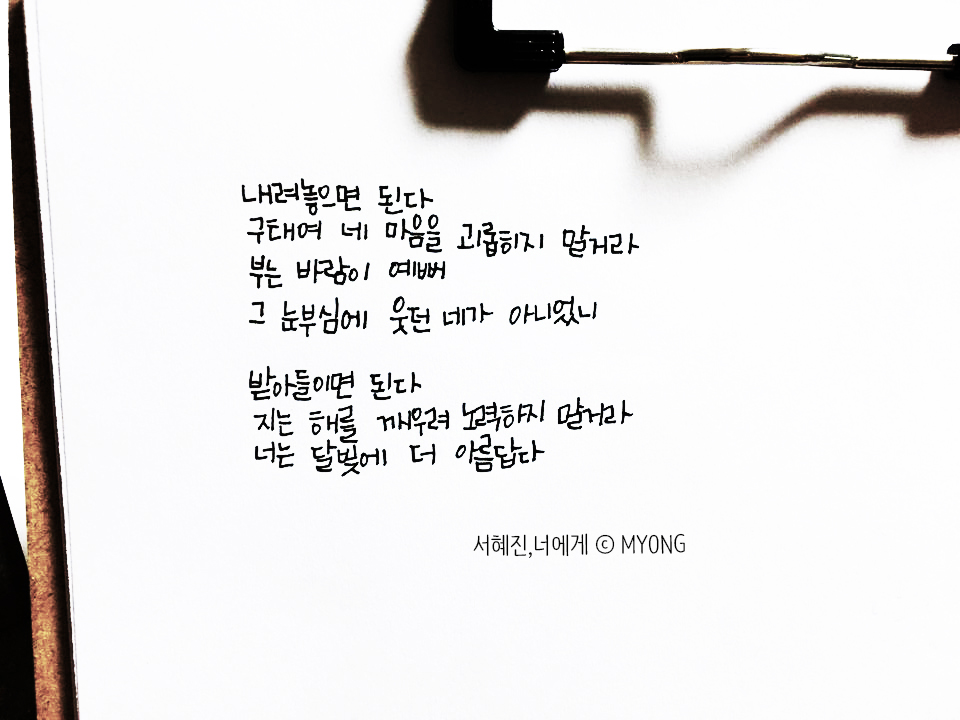 내려놓으면 된다
구태여 네 마음을 괴롭히지 말거라
부는 바람이 예뻐
그 눈부심에 웃던 네가 아니었니
받아들이면 된다
지는 해를 깨우려 노력하지 말거라
너는 달빛에 더 아름답다
서혜진,너에게 ⓒ MYONG